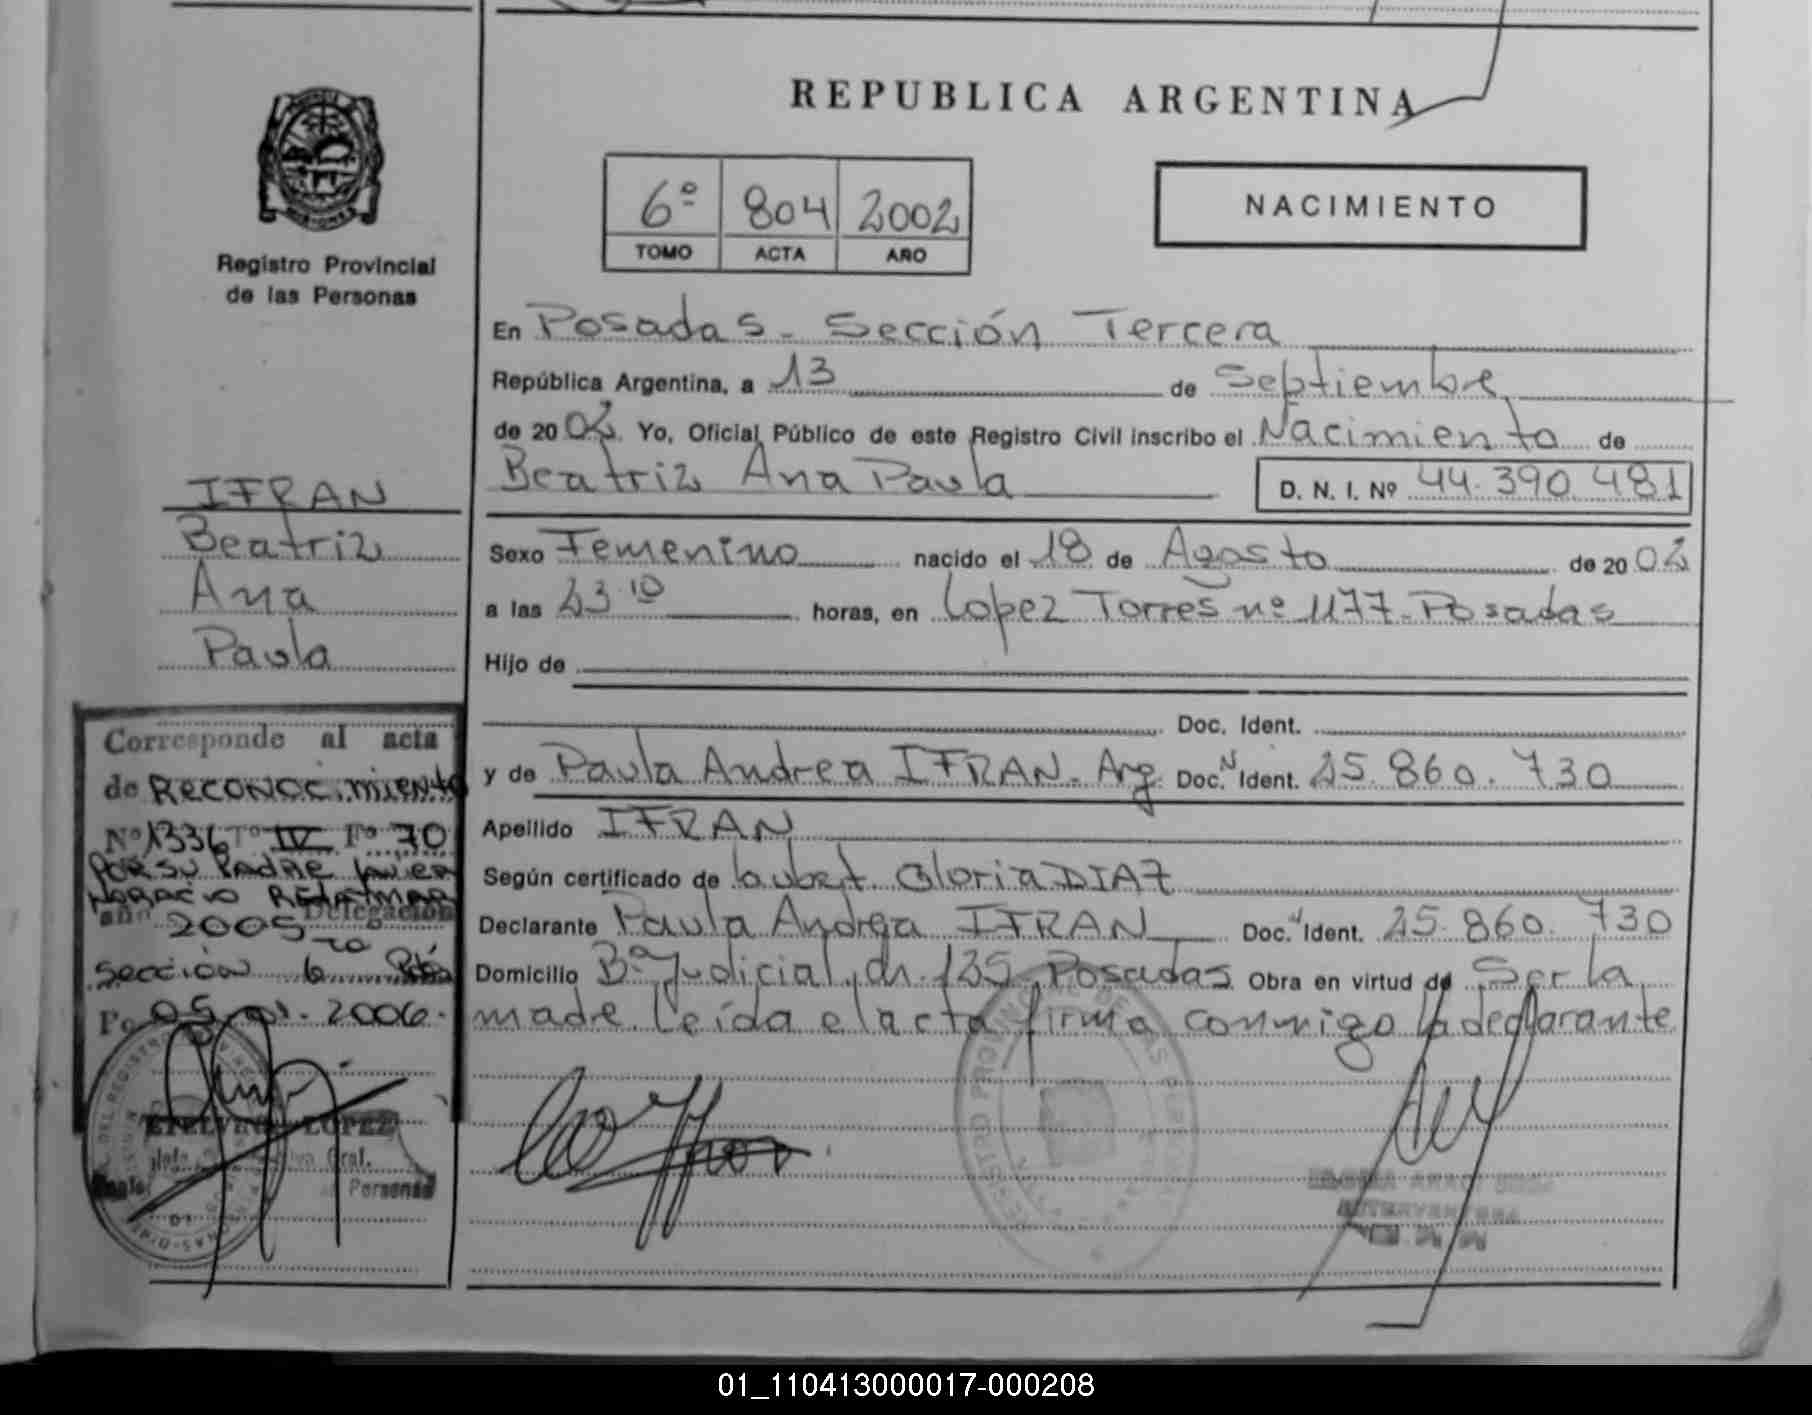 REPUBLICA ARGENTINA
MISIONES
Registro Provincial
de las Personas
6º 804 2002
TOMO ACTA AÑO
NACIMIENTO
En Posadas - Sección Tercera
República Argentina, a 13 de Septiembre
de 2002. Yo, Oficial Público de este Registro Civil inscribo el Nacimiento de
Beatriz Ana Paula
D. N. I. Nº 44.390.481
IFRAN
Beatriz
Ana
Paula
Sexo Femenino nacido el 18 de Agosto de 2002
a las 23.10 horas, en Lopez Torres nº 1177 - Posadas
Hijo de
Doc. Ident.
y de Paula Andrea IFRAN - Arg. Doc. N Ident. 25.860.730
Apellido IFRAN
Según certificado de Gloria DIAZ
Declarante Paula Andrea IFRAN Doc. N Ident. 25.860.730
Domicilio Bº Judicial, ch. 135, Posadas Obra en virtud de Ser la
madre. Leída el acta firma conmigo la declarante
Corresponde al acta
de Reconocimiento
Nº 1336 Tº IV Fº 70
POR SU PADRE JAVIER
HORACIO
año 2005 Delegación
sección 6
Po 05 2006.
LOPEZ
Gral.
Personas
01_110413000017-000208